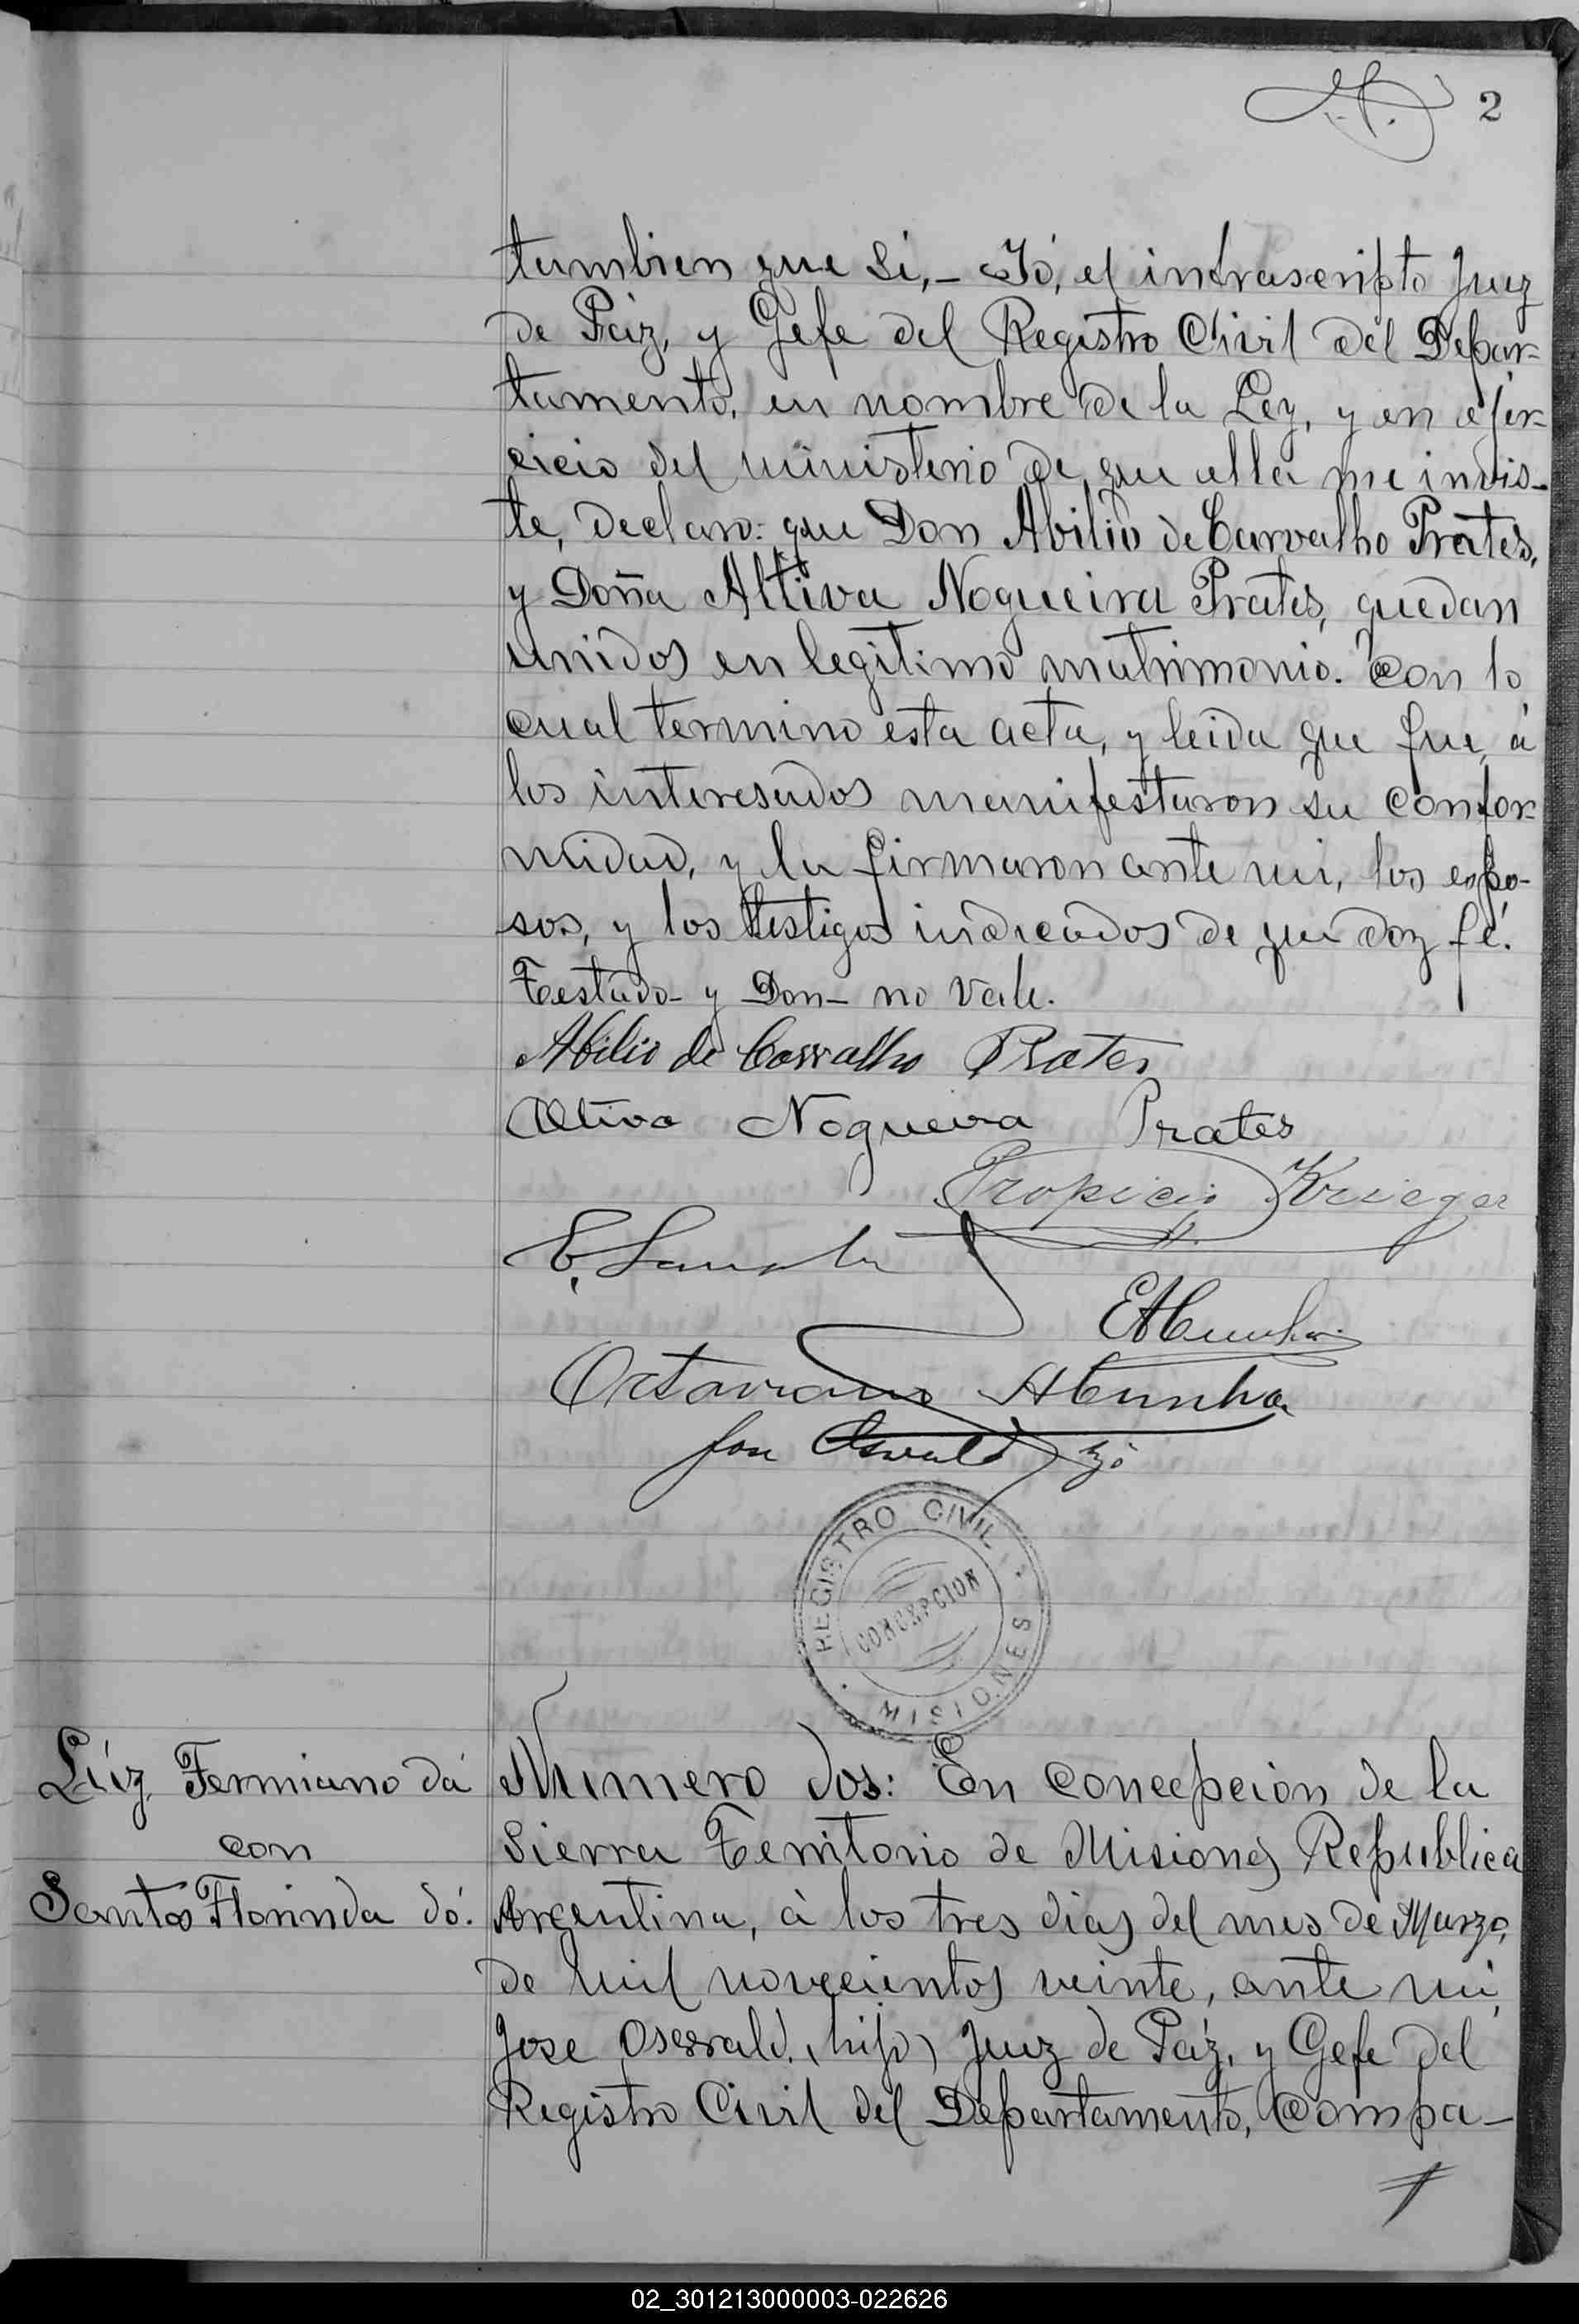 2
tambien que si,- Yó, el infrascripto Juez
de Páz, y Gefe del Registro Civil del Depar=
tamento, en nombre de la Ley, y en ejer=
cicio del ministerio de que ella me invis-
te, declaro: que Don Abilio de Carvalho Prates,
y Doña Altiva Nogueira Prates, quedan
unidos en legitimo matrimonio. Con lo
cual termino esta acta, y leida que fue, á
los interesados manifestaron su confor=
midad, y la firmaron ante mi, los espo-
sos, y los testigos indicados de que doy fé.
Testado- y Don- no vale.
Abilio de Carvalho Prates
Altiva Nogueira Prates
Propicio Krieger
E.
EACunha
Octaviano ACunha
Jose Oswald hjo
REGISTRO CIVIL
CONCEPCION
MISIONES
Lúiz Fermiano da
con
Santos Florinda dó.
Número dos: En Concepcion de la
Sierra Territorio de Misiones Republica
Argentina, à los tres dias del mes de Marzo,
de mil novecientos veinte, ante mi,
Jose Osswald. (hijo) Juez de Páz, y Gefe del
Registro Civil del Departamento, Compa-
02_301213000003-022626